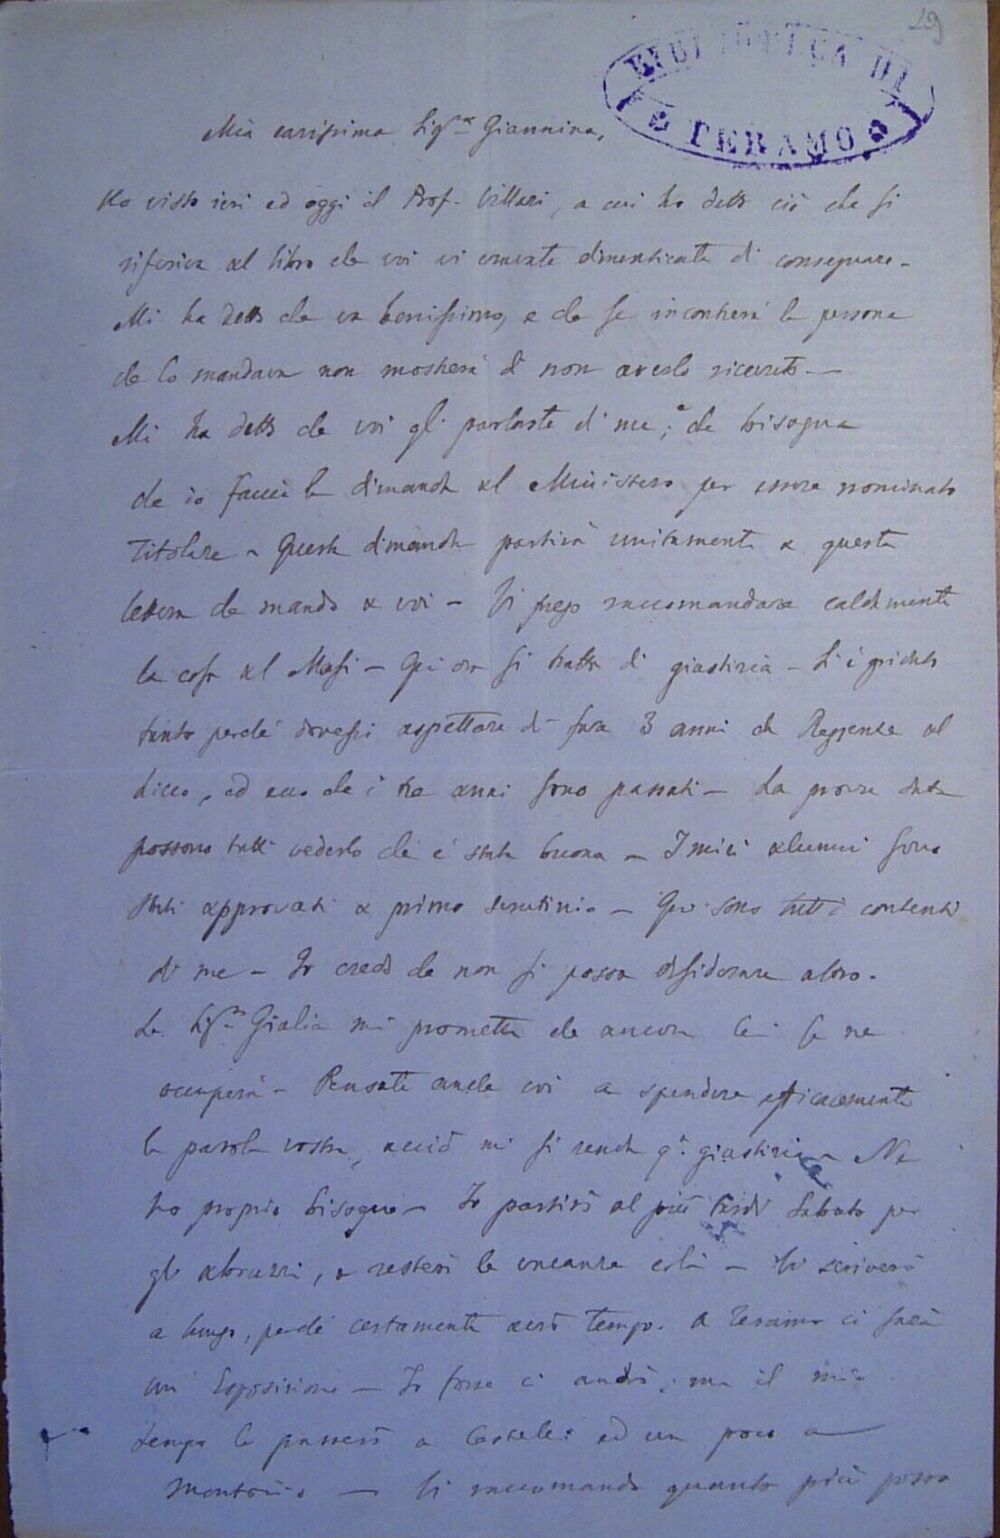 29
BIBLIOTECA DI
TERAMO
Mia carissima Sigra Giannina,
Ho visto ieri ed oggi il Prof. Villari, a cui ho detto ciò che si
riferiva al libro che voi vi eravate dimenticata di consegnare -
Mi ha detto che va benissimo, e che se incontrerà la persona
che lo mandava non mostrerà di non averlo ricevuto -
Mi ha detto che voi gli parlaste di me; e che bisogna
che io facci la dimanda al Ministero per essere nominato
Titolare - Questa dimanda partirà unitamente a questa
lettera che mando a voi - Vi prego raccomandare caldamente
la cosa al Masi - Qui ora si tratta di giustizia - Si è gridato
tanto perché dovessi aspettare di fare 3 anni da Reggente al
Liceo, ed ecco che i tre anni sono passati - La prova data
possono tutti vederlo che è stata buona - I miei alunni sono
stati approvati a primo scrutinio - Qui sono tutti contenti
di me - Io credo che non si possa desiderare altro.
La Sigra Giulia mi promette che ancora lei se ne
occuperà - Pensate anche voi a spendere efficacemente
la parola vostra, acciò mi si renda qa giustizia - Ne
ho proprio bisogno - Io partirò al più tardi Sabato per
gli Abruzzi, e resterò le vacanze colà - Vi scriverò
a lungo, perché certamente avrò tempo. A Teramo ci sarà
un' Esposizione - Io forse ci andrò; ma il mio
tempo lo passerò a Castelli ed un poco a
Montorio - Vi raccomando quanto più posso